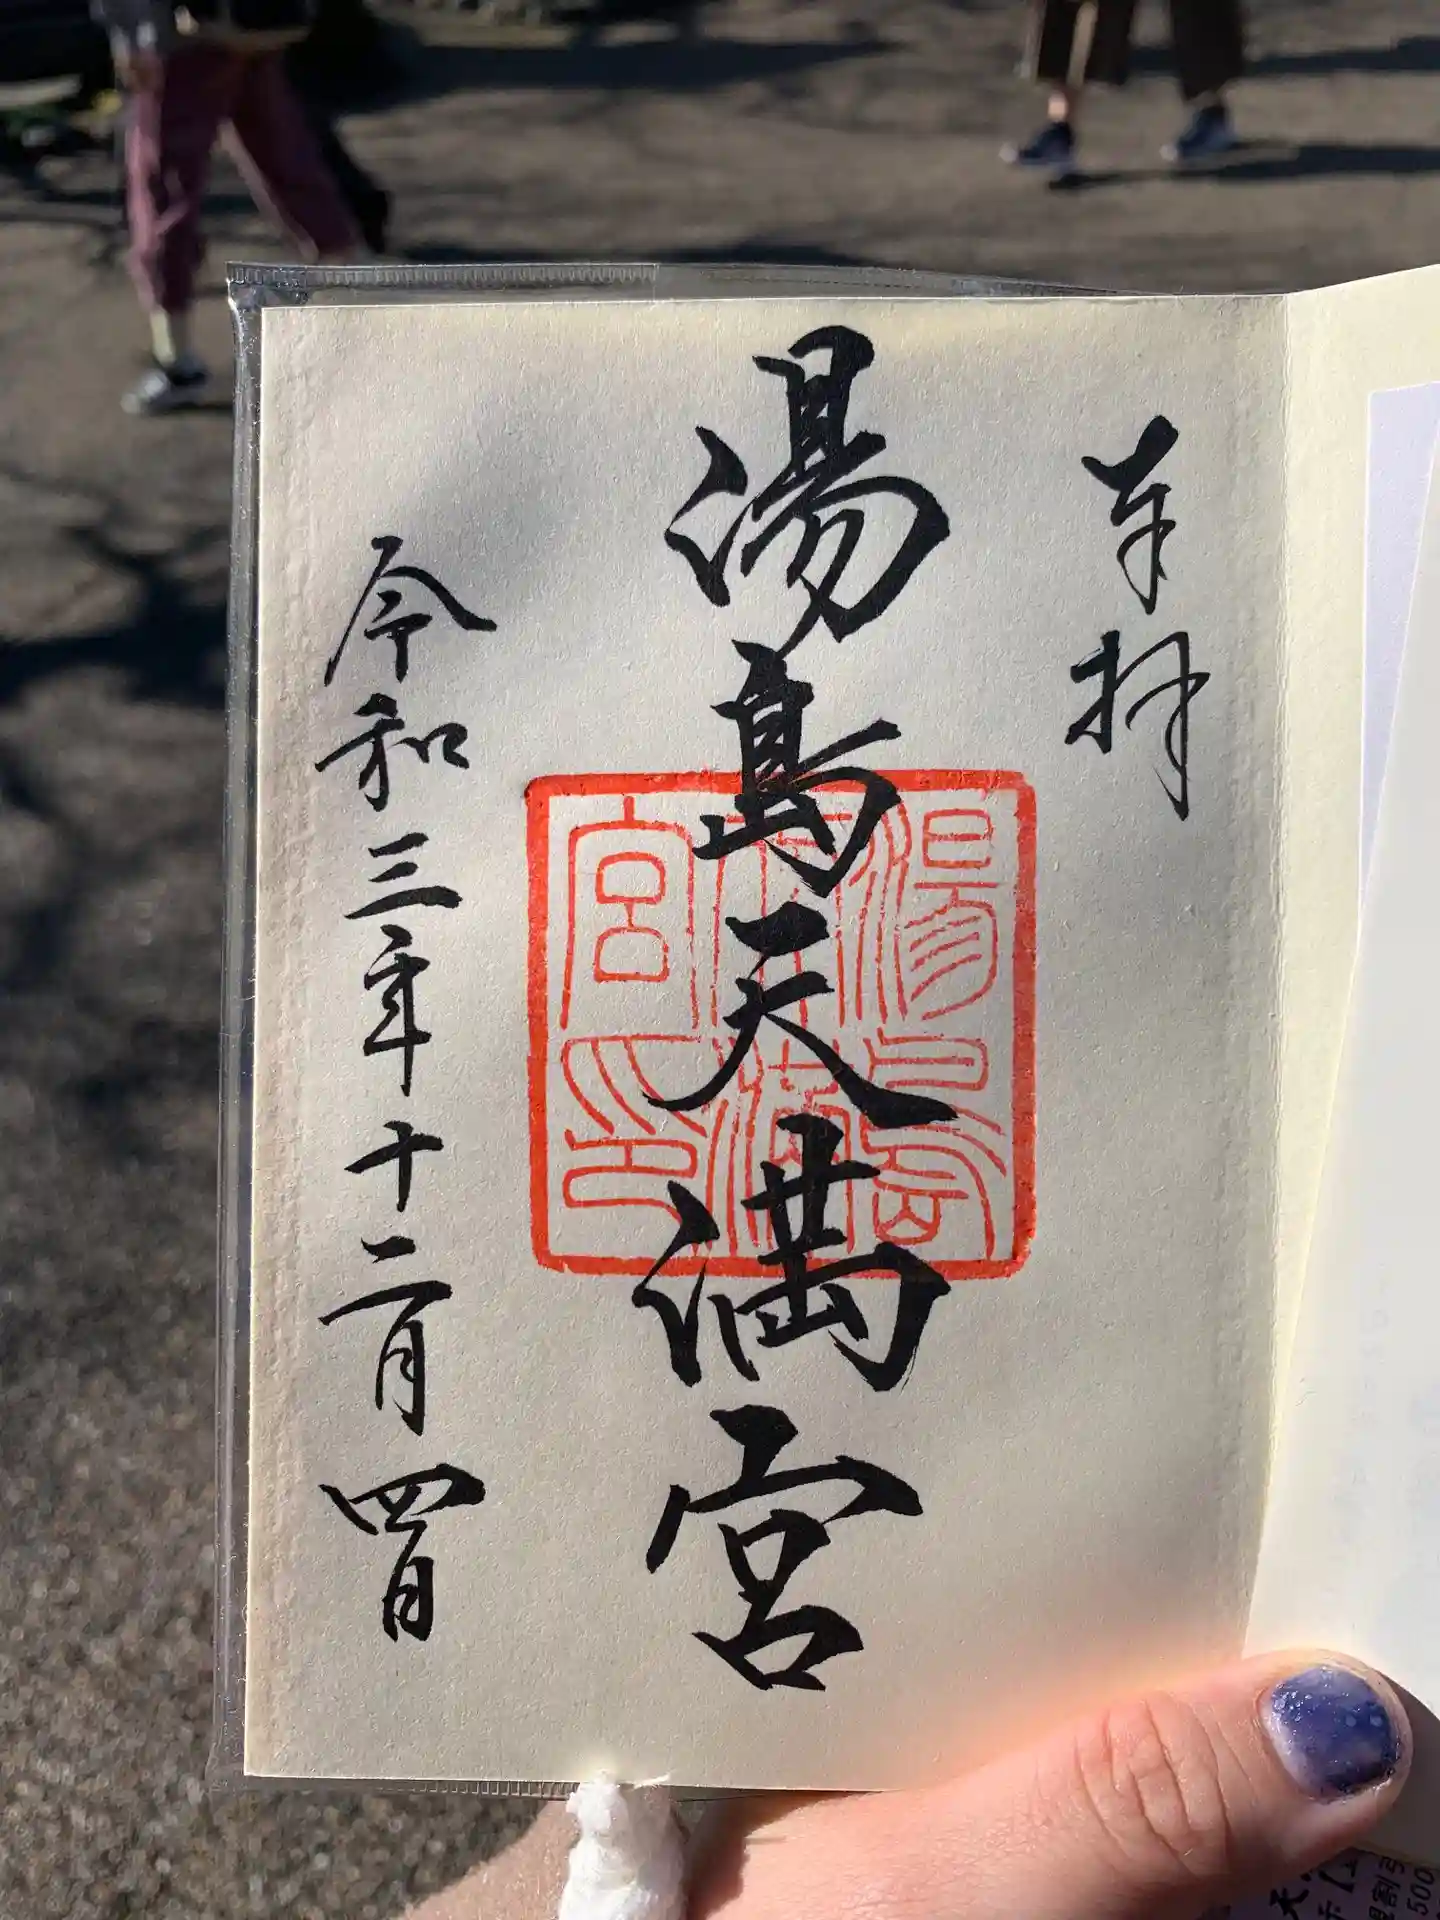 奉拝
湯島天満宮
湯島天満宮印
令和三年十二月四日
500